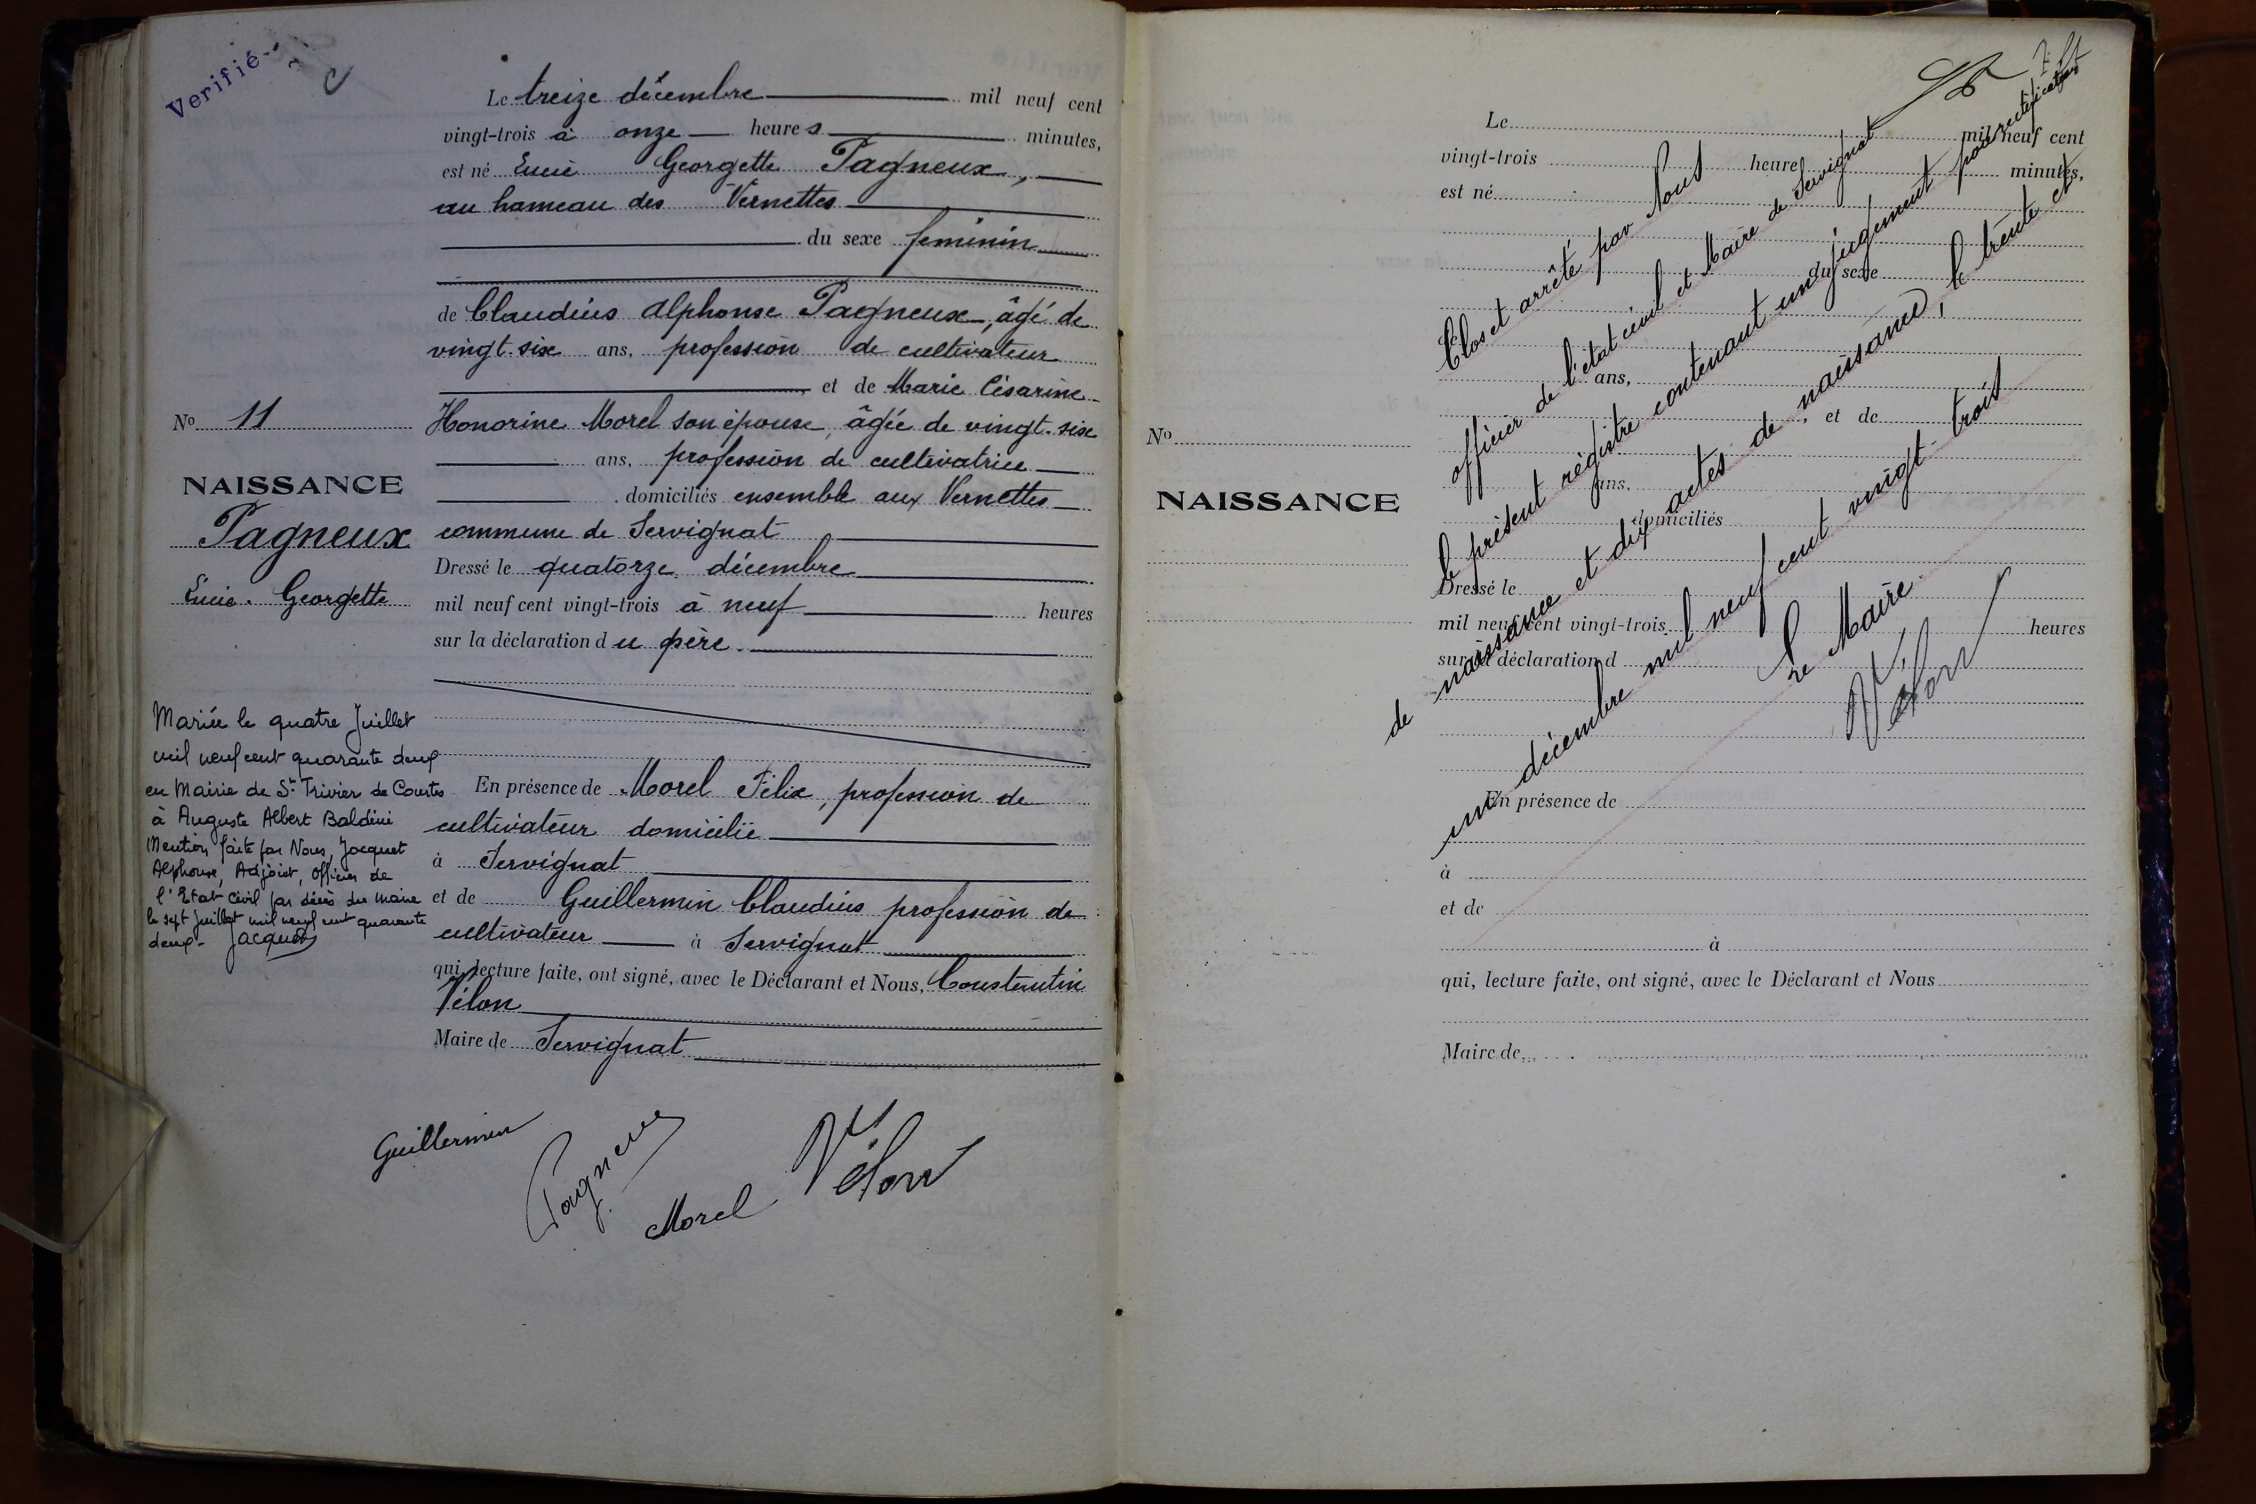 Verifié
Le treize décembre mil neuf cent
vingt-trois à onze heures minutes,
est né Lucie Georgette Pagneux,
au hameau des Vernettes
du sexe féminin
de Claudius Alphonse Pagneux, âgé de
vingt-six ans, profession de cultivateur
et de Marie Césarine
Honorine Morel son épouse, âgée de vingt-six
ans, profession de cultivatrice
domiciliés ensemble aux Vernettes
commune de Servignat
Dressé le quatorze décembre
mil neuf cent vingt-trois à neuf heures
sur la déclaration du père.
En présence de Morel Félix, profession de
cultivateur domicilié
à Servignat
et de Guillermin Claudius profession de
cultivateur à Servignat
qui, lecture faite, ont signé, avec le Déclarant et Nous, Constantin
Vélon
Maire de Servignat
No 11
NAISSANCE
Pagneux
Lucie. Georgette
Mariée le quatre Juillet
mil neuf cent quarante deux
en Mairie de St Trivier de Courtes
à Auguste Albert Baldini
Mention faite par Nous, Jacquet
Alphonse, Adjoint, Officier de
l'Etat Civil par décès du Maire
le sept Juillet mil neuf cent quarante
deux- Jacquet
Guillermin
Pagneux
Morel
Vélon
Le mil neuf cent
vingt-trois heure minutes,
est né
du sexe
de
ans,
et de
ans,
domiciliés
Dressé le
mil neuf cent vingt-trois heures
sur la déclaration d
En présence de
à
et de
à
qui, lecture faite, ont signé, avec le Déclarant et Nous
Maire de
No
NAISSANCE
Clos et arrêté par Nous
officier de l'état civil et Maire de Servignat
le présent régistre contenant un jugement pour rectification
de naissance et dix actes de naissance, le trente et
un décembre mil neuf cent vingt-trois
Le Maire
Vélon